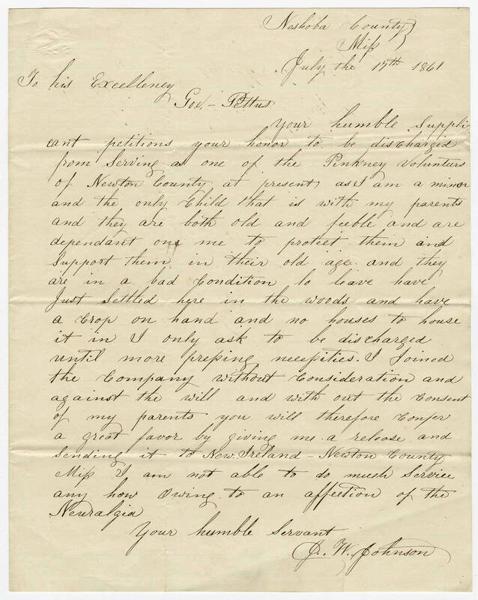 Neshoba County
Miss
July the 17th 1861
To his Excellency
Gov - Pettus
Your humble Suppli
cant petitions your honor to be discharged
from Serving as one of the Pinkney Volunteers
of Newton County at present, as I am a minor
and the only Child that is with my parents
and they are both old and feeble and are
dependant one me to protect them and
Support them in their old age and they
are in a bad Condition to leave have
Just Settled here in the woods and have
a Crop on hand and no houses to house
it in I only ask to be discharged
until more pressing necessities. I Joined
the Company without Consideration and
against the will and with out the Consent
of my parents you will therefore Confer
a great favor by giving me a release and
Sending it to New Ireland - Newton County
Miss I am not able to do much Service
any how Owing to an affection of the
Neuralgia
Your humble Servant
W. Johnson